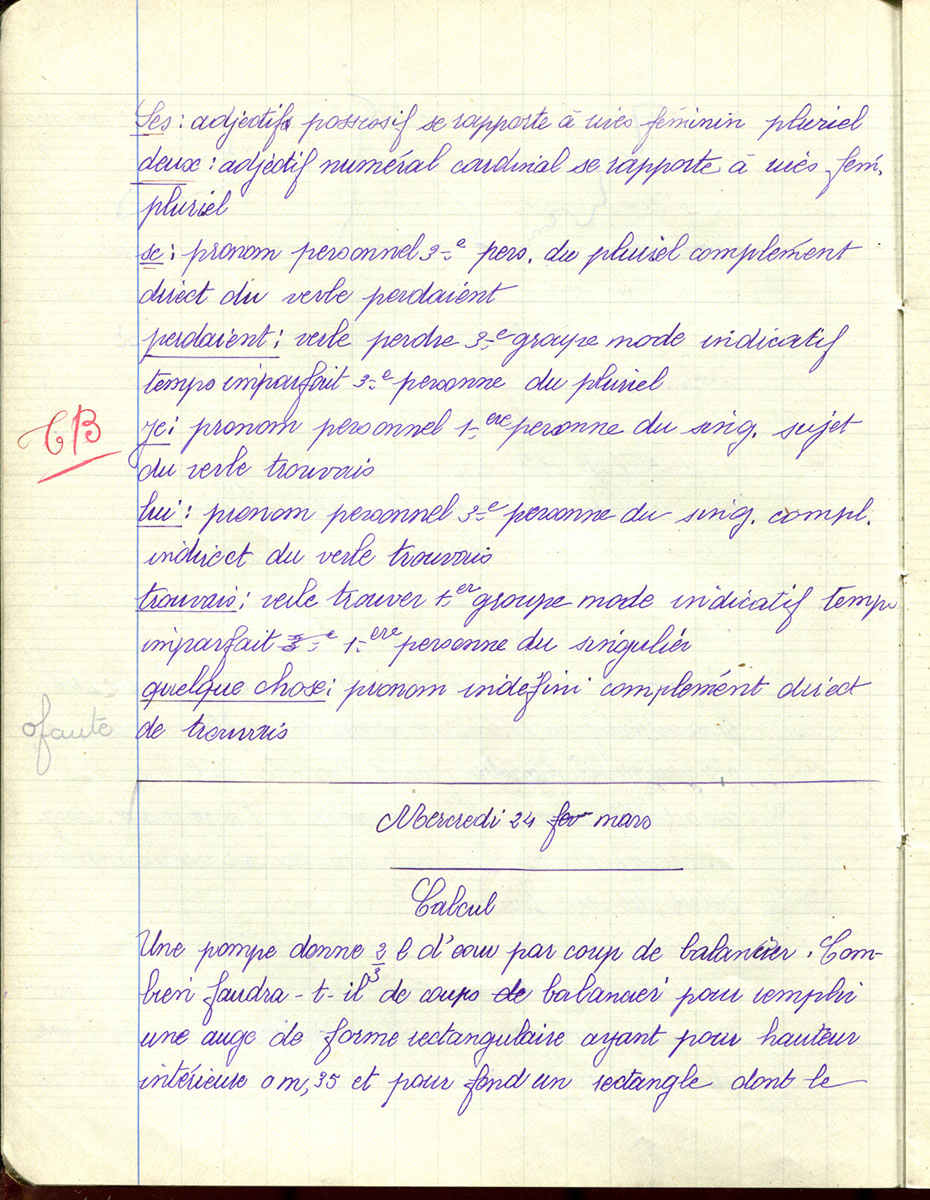 Ses : adjectif possessif se rapporte à uies féminin pluriel
deux : adjectif numéral cardinal se rapporte à uies fem.
pluriel
se : pronom personnel 3e pers. du pluriel complément
direct du verbe perdaient
perdaient : verbe perdre 3e groupe mode indicatif
temps imparfait 3e personne du pluriel
TB
je : pronom personnel 1ere personne du sing. sujet
du verbe trouvais
lui : pronom personnel 3e personne du sing. compl.
indirect du verbe trouvais
trouvais : verbe trouver 1er groupe mode indicatif temps
imparfait 3e 1ere personne du singulier
quelque chose : pronom indéfini complément direct
0 faute
de trouvais
Mercredi 24 fev mars
Calcul
Une pompe donne 2/3 l d'eau par coup de balancier. Com-
bien faudra-t-il de coups de balancier pour remplir
une auge de forme rectangulaire ayant pour hauteur
intérieure 0 m, 35 et pour fond un rectangle dont le